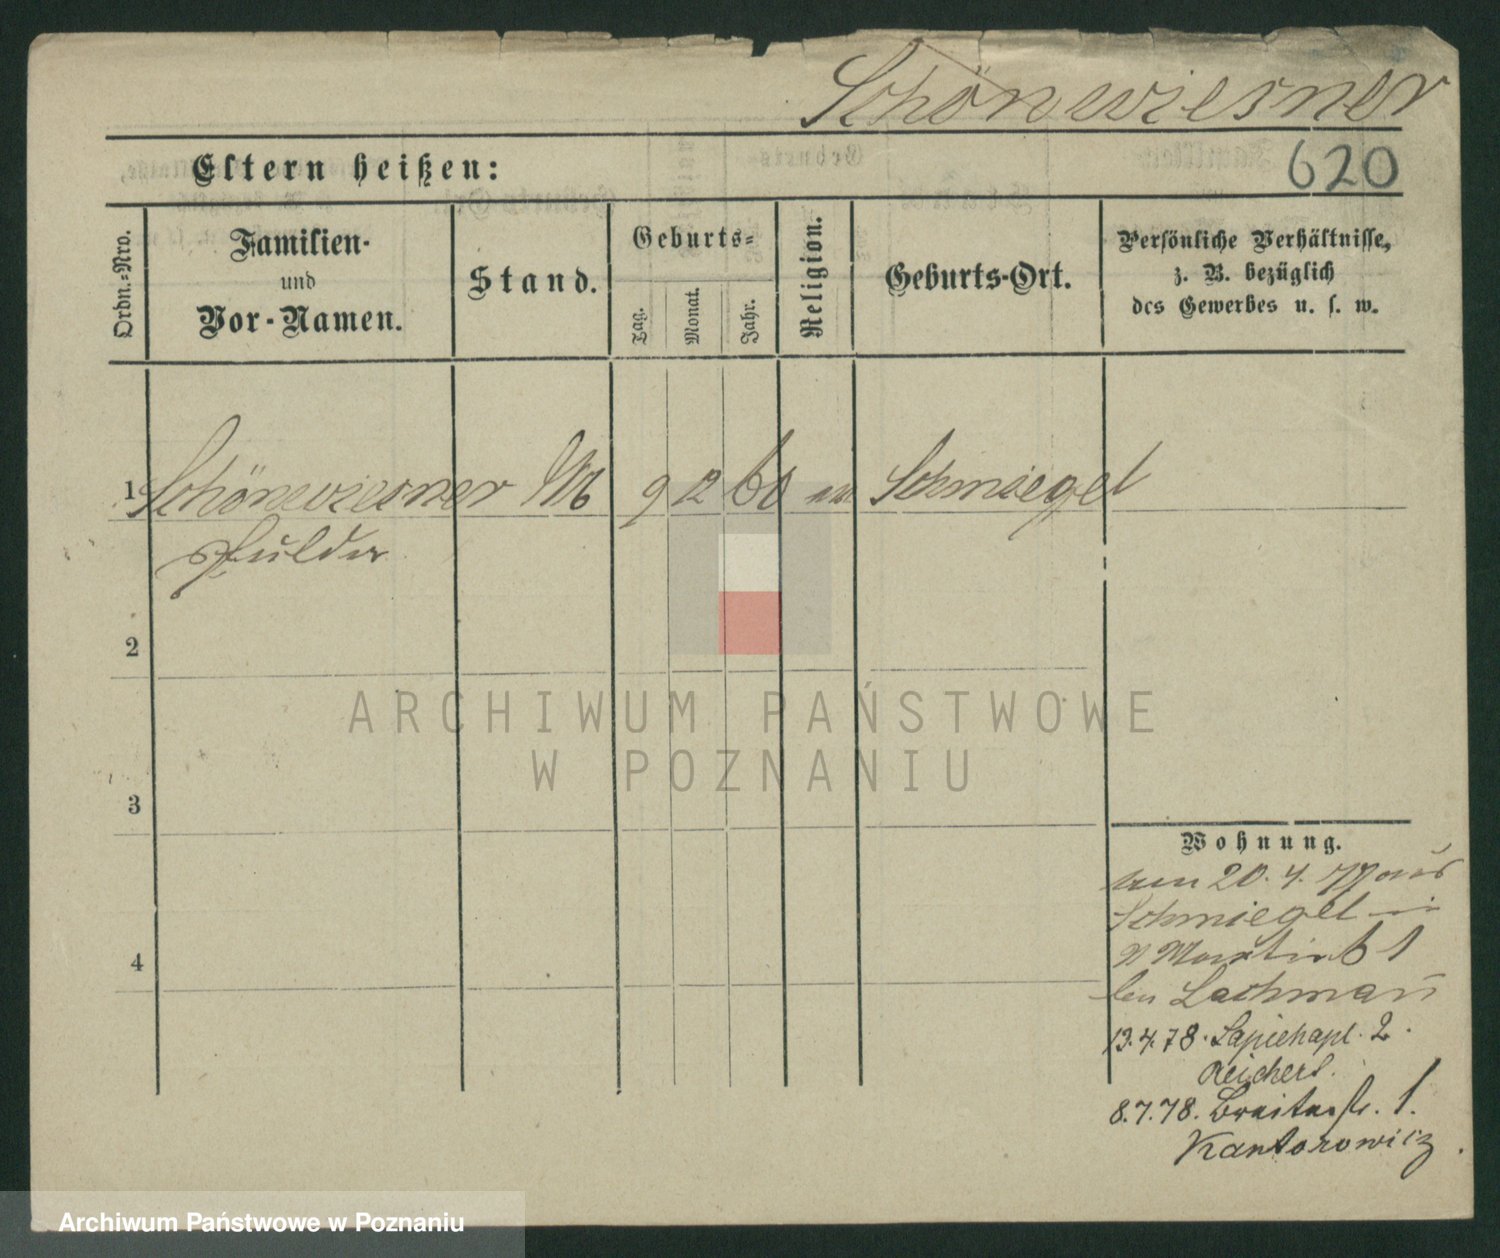 Schönewiesner
620
Eltern heißen:
Ordn.-Nro.
Familien-
und
Vor-Namen.
Stand.
Geburts-
Tag.
Monat.
Jahr.
Religion.
Geburts-Ort.
Persönliche Verhältnisse,
z. B. bezüglich
des Gewerbes u. s. w.
1 Schönewiesner M 9 12 60 Schmiegel
2
3
4
ARCHIWUM PAŃSTWOWE
W POZNANIU
Wohnung.
20. 4. 77 aus
Schmiegel in
Martin 61
bei Lachmañ
13.4.78. Sapiehapl. 2.
Reichert.
8.7.78. Breitestr. 1.
Kantorowicz.
Archiwum Państwowe w Poznaniu